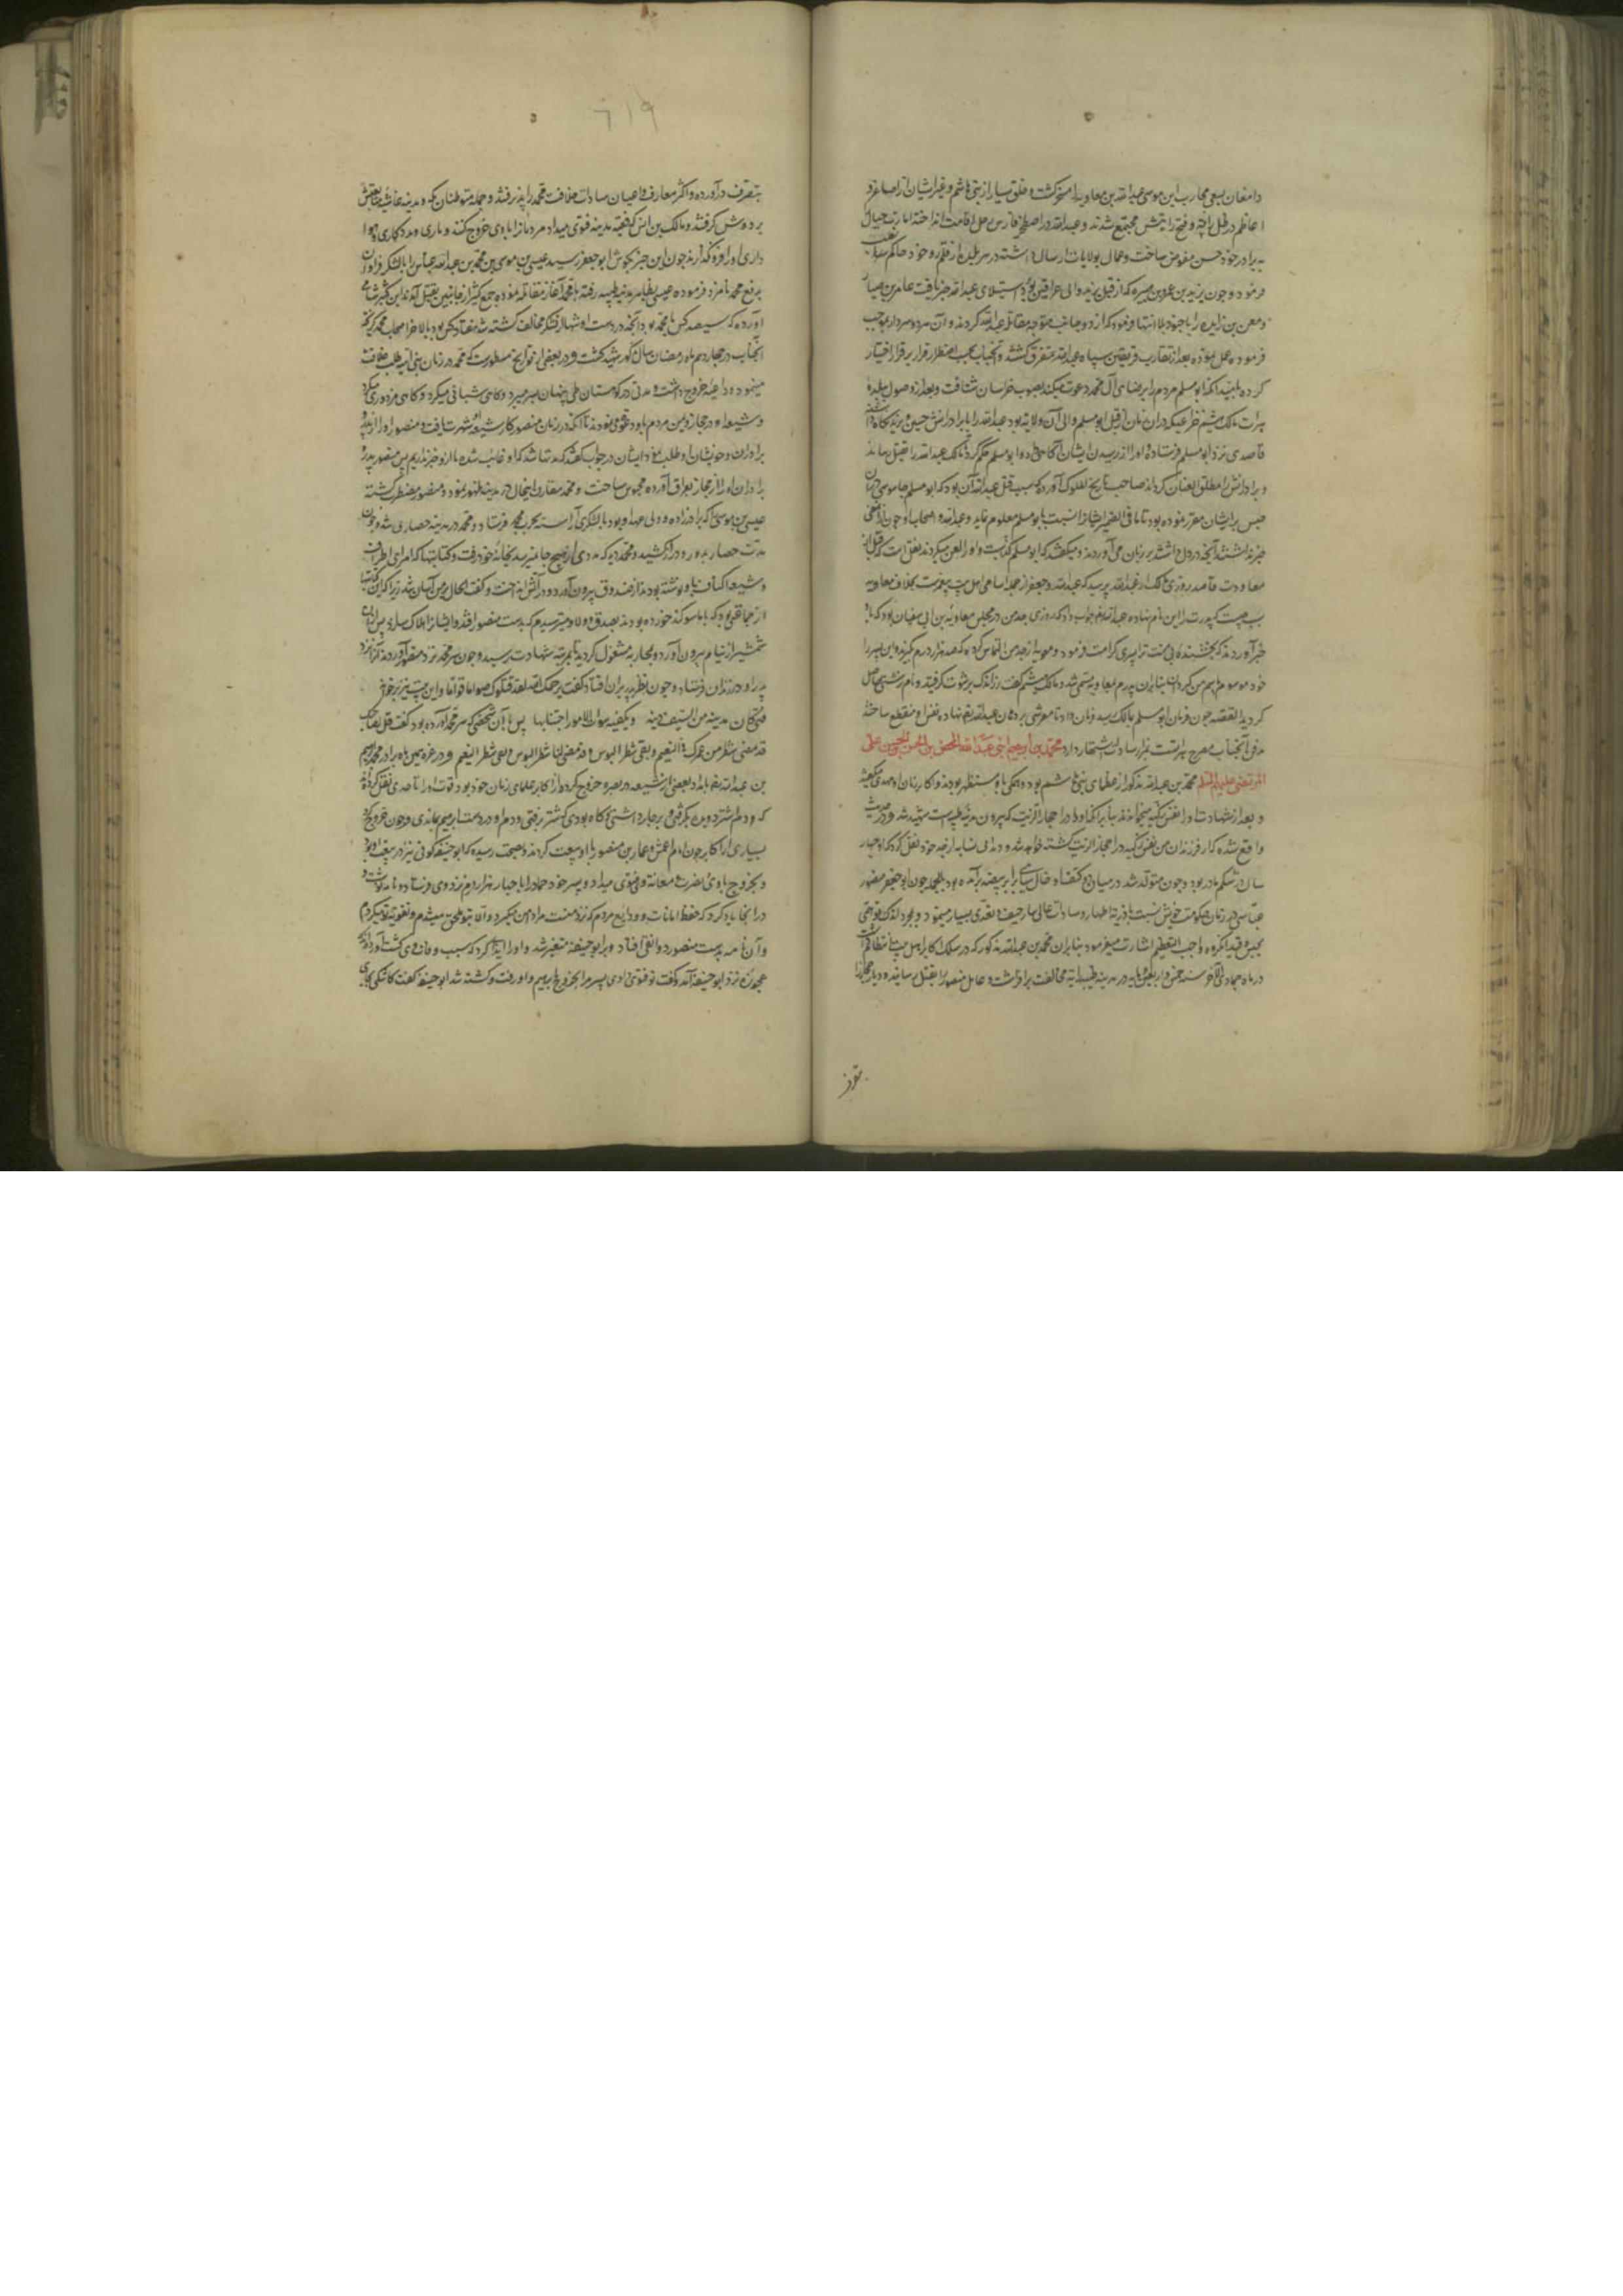 دامغان بسعی محارب ابن موسی عبدالله بن معاویه را مسخر کشت و خلق بسیار از بنی هاشم و غیر ایشان از اصاغر و
اعاظم در ظل رایت فتح رایتش مجتمع شدند و عبدالله در اصطخر فارس رحل اقامت انداخته امارت جبال
به برادر خود حسن مفوض ساخت و عمال بولایات ارسال داشته در هر بلده از قلمرو خود حاکم نصب
فرمود و چون یزید بن عمر بن هبیره که از قبل یزید والی عراقین بود از استیلای عبدالله خبر یافت عامر بن ضباره
و معن بن زایده را با جنود بلا انتها فرمود که از دو جانب متوجه مقاتله عبدالله کردند و آن مرد و سردار بموجب
فرموده عمل نموده بعد از تقارب فریقین سپاه عبدالله متفرق کشتند و آنجناب بحسب اضطرار فرار بر قرار اختیار
کرده بامید آنکه ابو مسلم مردم را برضای آل محمد دعوت میکند بصوب خراسان شتافت و بعد از وصول ببلده
هرات مالک بن هیثم خزاعی که در آن زمان از قبل ابو مسلم والی آن ولایت بود عبدالله را با برادرانش حسن و یزید نگاه داشته
قاصدی نزد ابو مسلم فرستاده او را از رسیدن ایشان آگاهی داد و ابو مسلم حکم کرد تا مالک عبدالله را بقتل رساند
و برادرانش را مطلق العنان کرداند صاحب تاریخ الملوک آورده که سبب قتل عبدالله آن بود که ابو مسلم جاسوسی در آن
حبس بر ایشان مقرر نموده بود تا ما فی الضمیر ایشانرا نسبت بابو مسلم معلوم نماید و عبدالله و اصحاب او چون از آن معنی
خبر نداشتند آنچه در دل داشتند بر زبان می آوردند و میکفتند که ابو مسلم کذابست و او را لعن میکردند نقل است که قبل از
معاودت قاصد روزی مالک از عبدالله پرسید که عبدالله و جعفر از جمله اسامی اهل بیت پیغمبرست بخلاف معاویه
سبب چیست که پدرت را این نام نهاده عبدالله جواب داد که روزی جد من در مجلس معاویه بن ابی سفیان بود که باو
خبر آوردند که بخشنده بی منت ترا پسری کرامت فرمود و معویه از جد من التماس کرد که صد هزار درم بگیرد و این پسر را
خود موسوم باسم من کرداند بنابرین پدرم بمعاویه مسمی شد و مالک بن هیثم گفت زر اندک برشوت گرفتید و نام زشتی حاصل
کردید القصه چون فرمان ابو مسلم بمالک رسید فرمان داد تا مفرشی بر دهان عبدالله نهاده نفس او منقطع ساختند
مدفن آنجناب مصرح هراتست بمزار سادات اشتهار دارد محمد و ابراهیم ابنی عبدالله المحض بن الحسن بن الحسن بن علی
المرتضی علیهم السلم محمد بن عبدالله مذکور از عظمای بنی هاشم بود و همکی باو مستظهر بودند و اکابر زمان او مهدی میکفتند
و بعد از شهادت او را نفس زکیه میخواندند بنابر آنکه او را در احجار الزیت که بیرون مدینه طیبه است شهید شد و در حدیث
واقع شده که از فرزندان من نفس زکیه در احجار الزیت کشته خواهد شد و مداینی از جد خود نقل کرد که او چهار
سال در شکم مادر بود و چون متولد شد در میان دو کتف او خالی سیاه برابر بیضه برآمده بود بالجمله چون ابو جعفر منصور
عباسی در زمان حکومت خویش نسبت بذریة اطهار و سادات عالی مقدار حیف و تعدی بسیار مینمود و بمجرد اندک توهمی
بحبس و قید انکروه واجب التعظیم اشارت میفرمود بنابر آن محمد بن عبدالله مذکور که در سلک اکابر اهل بیت انتظام داشت
در ماه جمادی الآخر سنه خمس و اربعین و مایه در مدینه طیبه رایت مخالفت بر افراشت و عامل منصور را بقتل رسانید و دیار حجاز را
بتصرف درآورده و اکثر معارف و اعیان سادات خلافت محمد را پذیرفتند و جمله متوطنان مکه و مدینه غاشیه بیعتش
بر دوش کرفتند و مالک بن انس که فقیه مدینه فتوی میداد مردمانرا با وی خروج کنند و یاری و مددکاری و هوا
داری او را فرو نکذارند چون این خبر بکوش ابو جعفر رسید عیسی بن موسی بن محمد بن عبدالله عباس را با لشکر فراوان
بدفع محمد نامزد فرموده عیسی بظاهر مدینه طیبه رفته با محمد آغاز مقاتله نموده جمع کثیر از جانبین بقتل آمدند ابن کثیر شامی
آورده که سیصد کس با محمد بود آنچه در دست او تنها از لشکر مخالف کشته شد هفتاد کس بود بالاخر اصحاب محمد کریخته
آنجناب در چهاردهم ماه رمضان سال مذکور شهید کشت و در بعضی از تواریخ مسطورست که محمد در زمان بنی امیه طلب خلافت
مینمود و داعیه خروج داشت و مدتی در کوهستان طی پنهان بسر میبرد و کاهی شبانی میکرد و کاهی مزدوری میکرد
و شیعه او در حجاز و یمن مردم باو دعوت می نمودند تا آنکه در زمان منصور کار شیعه او شهرت یافت و منصور او را از پدر و
برادران و خویشان او طلب نمود ایشان در جواب کفتند که مدتها شد که او غایب شده ما از او خبر نداریم پس منصور پدر و
برادران او را از حجاز بعراق آورده محبوس ساخت و محمد مقارن اینحال در مدینه ظهور نمود و منصور مضطرب کشته
عیسی بن موسی که برادرزاده و ولی عهد او بود با لشکری آراسته بحرب محمد فرستاد و محمد در مدینه حصاری شد و چون
مدت حصار بدور و دراز کشید و محمد دید که مددی از هیچ جا نمیرسد بخانه خود رفت و کتابتها که امرای اطراف
و شیعه اکناف باو نوشته بودند از صندوق بیرون آورد و در آتش انداخت و گفت الحال مردن بر من آسان شد زیرا که این کتابتها
از جماعتی بود که با ما سوکند خورده بودند بصدق و ولا و میترسیدم که بدست منصور افتد و ایشانرا هلاک سازد پس آن
شمشیر از نیام بیرون آورد و بمحاربه مشغول کردید تا بمرتبه شهادت رسید و چون سر محمد نزد منصور آوردند آنرا نزد
پدر او در زندان فرستاد و چون نظر پدر بر آن افتاد گفت یرحمک الله لقد قتلوک صواما قواما و این بیت نیز برخواند
فتی کان یدنیه من السیف دینه   و یکفیه سوات الامور اجتنابها   پس با آن شخص که سر محمد آورده بود گفت قل لصاحبک
قد مضی شطر من عمرک فی النعیم و بقی شطر البوس و قد مضی لنا شطر البوس و بقی شطر النعیم و در غره همین ماه برادر محمد ابراهیم
بن عبدالله بامداد بعضی از شیعه در بصره خروج کرد و از اکابر علمای زمان خود بود
بسیاری از اکابر چون امام اعمش و عمار بن منصور با او بیعت کردند و بصحت رسیده که ابو حنیفه کوفی نیز در بیعت او بود
و بخروج با وی نصرت و معاونة او فتوی میداد و پسر خود حماد را با چهار هزار درم نزد وی فرستاد و نامه نوشت و
در آنجا یاد کرد که حفظ امانات و ودایع مردم که نزد منست مرا دامن میکیرد و الا بتو ملحق میشدم و تقویت تو میکردم
و آن نامه بدست منصور دوانقی افتاد و بر ابو حنیفه متغیر شد و او را ایذا کرد که سبب وفات وی کشت آورده اند که
عجوزه نزد ابو حنیفه آمد و گفت تو فتوی دادی پسر مرا بخروج با ابراهیم و او رفت و کشته شد ابو حنیفه گفت کاشکی بجای